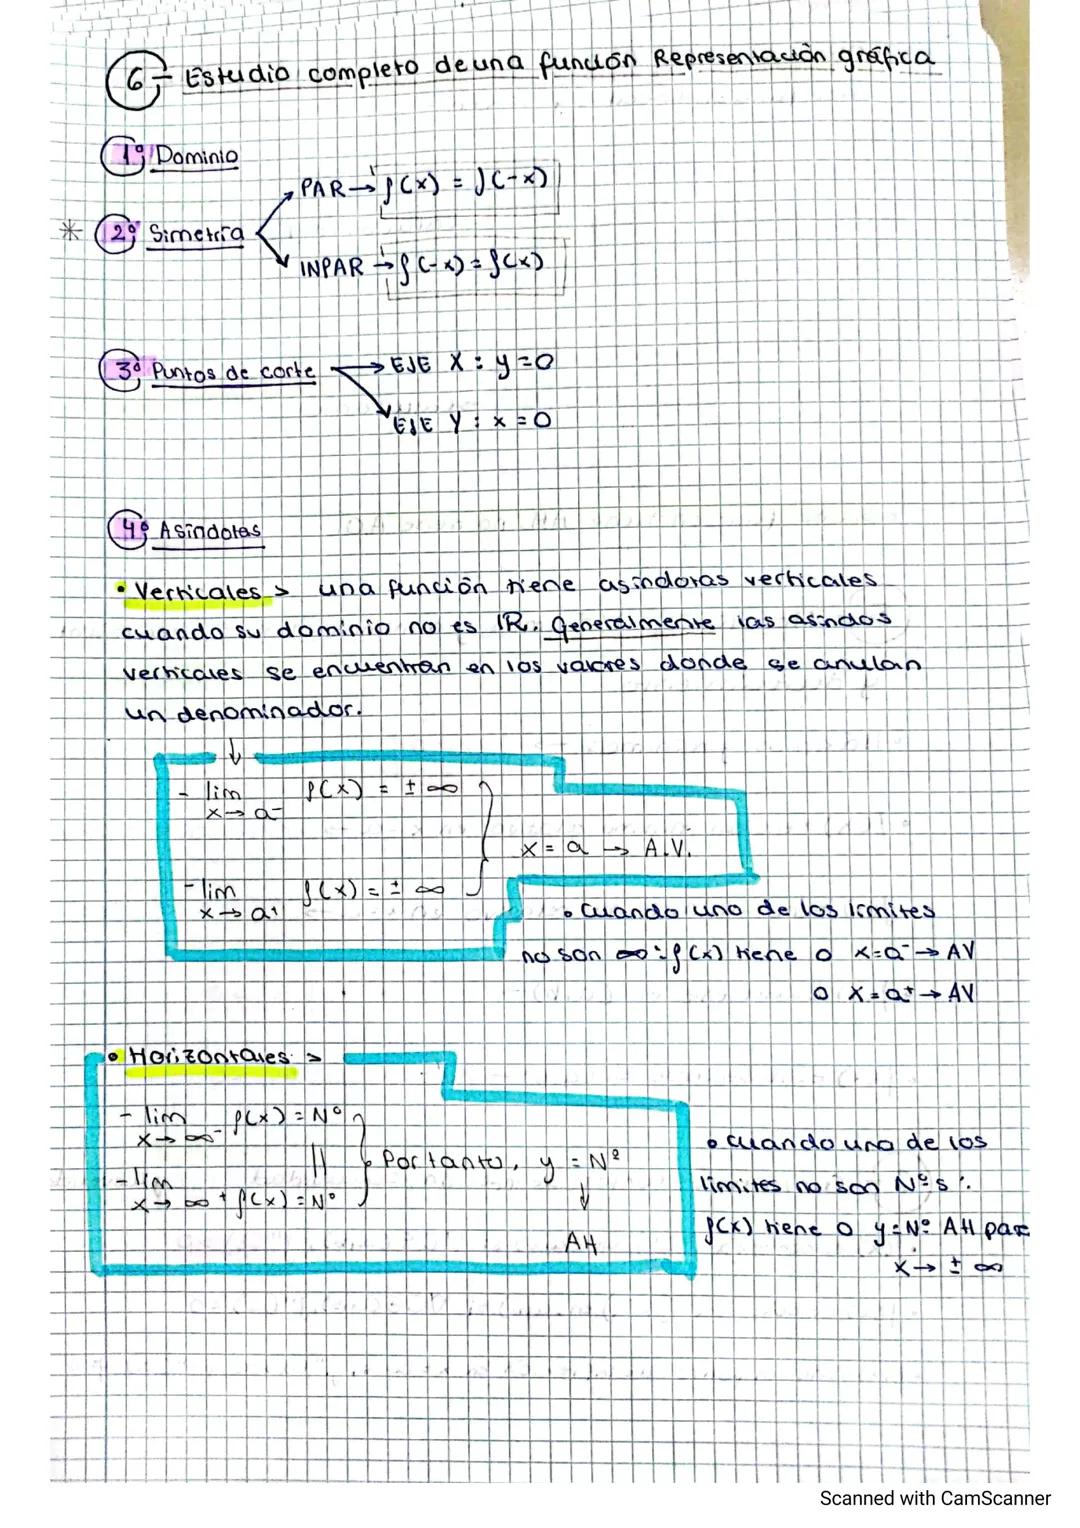 6- Estudio completo de una función Representación gráfica
1º Dominio
PAR → f(x) = f(-x)
* 2º Simetría
INPAR → f(-x) = f(x)
3º Puntos de corte → EJE X : y = 0
EJE Y : x = 0
4º Asíndotas
• Verticales > una función tiene asíndotas verticales
cuando su dominio no es ℝ. Generalmente las asíndos
verticales se encuentran en los valores donde se anulan
un denominador.
↓
- lim f(x) = ± ∞
x → a⁻
x = a → A.V.
- lim f(x) = ± ∞
x → a⁺
• Cuando uno de los límites
no son ∞ : f(x) tiene o x=a⁻ → AV
o x=a⁺ → AV
• Horizontales >
- lim f(x) = Nº
x → ∞⁻
|| Por tanto, y = Nº
- lim
x → ∞⁺ f(x) = Nº
↓
AH
• cuando uno de los
límites no son Nºs ∴
f(x) tiene o y=Nº AH para
x → ± ∞
Scanned with CamScanner